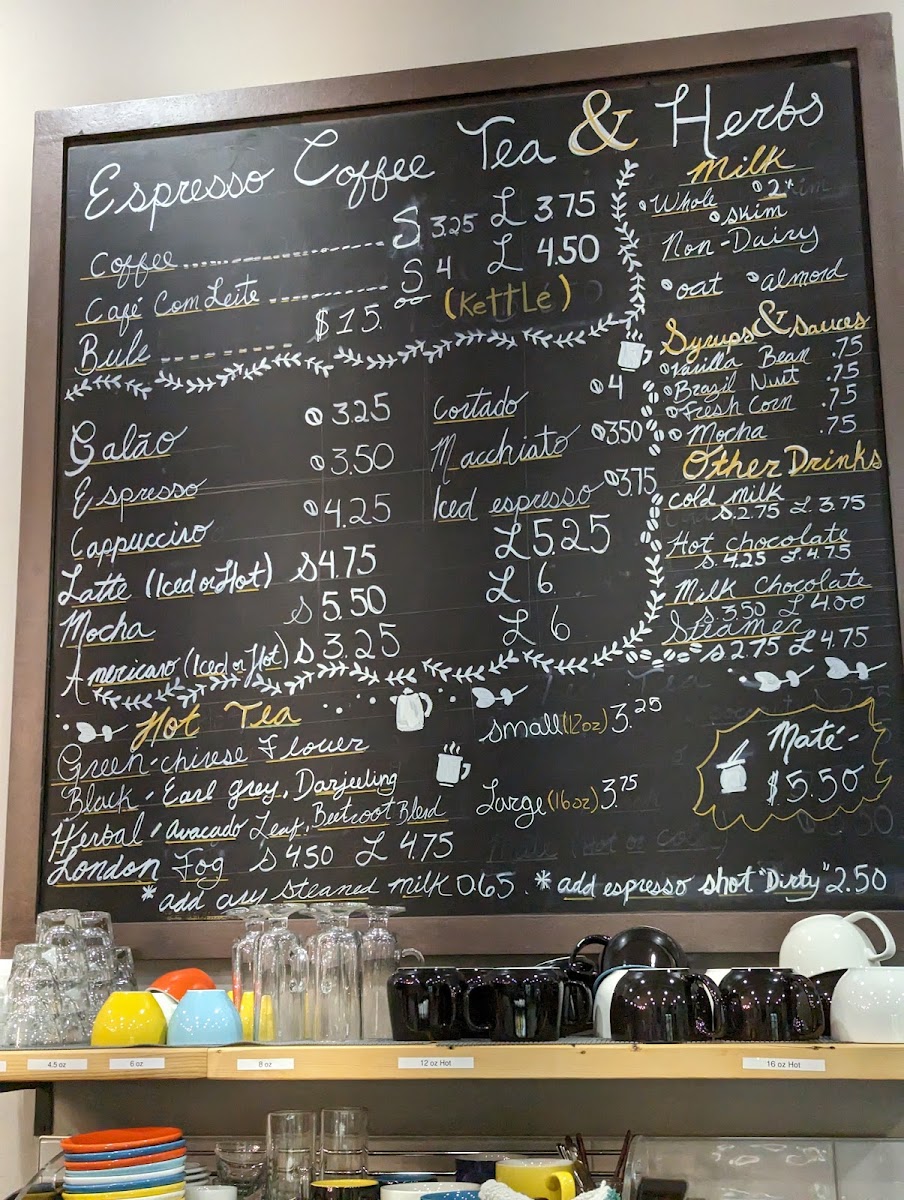 Espresso Coffee Tea & Herbs
Coffee S 3.25 L 3.75
Café Com Leite S 4.00 L 4.50
Bule $15. (KettLé)
Galão 3.25
Espresso 3.50
Cappuccino 4.25
Latte (Iced or Hot) S 4.75 L 5.25
Mocha S 5.50 L 6.
Americano (Iced or Hot) S 3.25 L 6
Cortado 4
Macchiato 350
Iced espresso 3.75
Milk
Whole 2%
skim
Non-Dairy
oat almond
Syrups & Sauces
Vanilla Bean .75
Brazil Nut .75
Fresh Corn .75
Mocha .75
Other Drinks
cold milk
S 2.75 L 3.75
Hot chocolate
S. 4.25 L. 4.75
Milk Chocolate
S 3.50 L 4.00
Steamer
S 2.75 L 4.75
Hot Tea
Green - chinese Flower
Black - Earl grey, Darjeeling
Herbal - Avacado Leaf, Beetroot Blend
London Fog S 4.50 L 4.75
small (12oz) 3.25
Large (16oz) 3.75
Maté -
$5.50
*add any steamed milk 0.65. *add espresso shot "Dirty" 2.50
4.5 oz
6 oz
8 oz
12 oz Hot
16 oz Hot